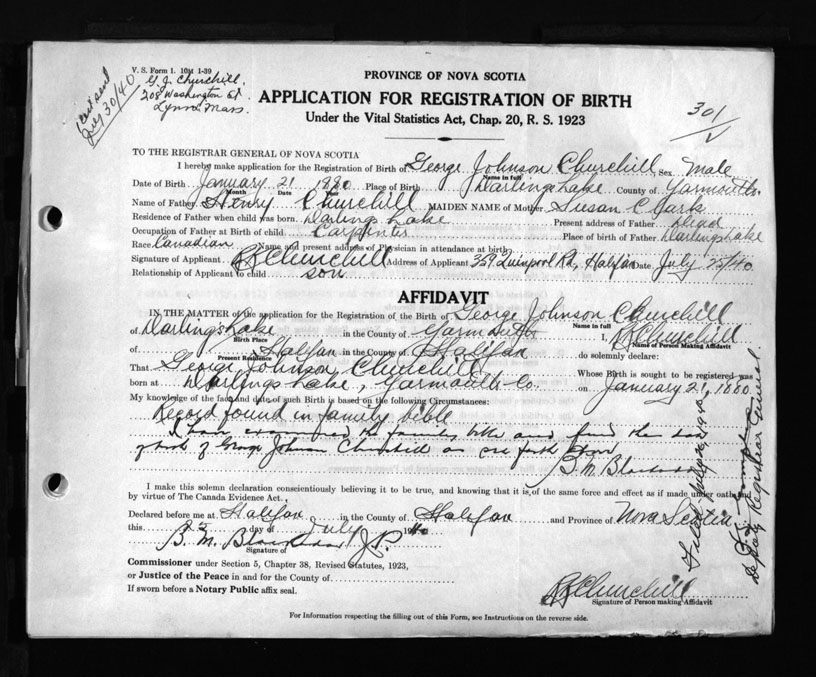 V. S. Form 1. 10M 1-39
G. J. Churchill.
208 Washington St.
Lynn Mass.
July 30/40
PROVINCE OF NOVA SCOTIA
301
APPLICATION FOR REGISTRATION OF BIRTH
Under the Vital Statistics Act, Chap. 20, R. S. 1923
TO THE REGISTRAR GENERAL OF NOVA SCOTIA
I hereby make application for the Registration of Birth of George Johnson Churchill, Sex Male
Name in full
Date of Birth January 21 1880 Place of Birth Darlings Lake County of Yarmouth
Month Date Year
Name of Father Henry Churchill MAIDEN NAME of Mother Susan C
Residence of Father when child was born. Darlings Lake Present address of Father dead
Occupation of Father at Birth of child Carpenter Place of birth of Father Darlings Lake
Race Canadian Name and present address of Physician in attendance at birth
Signature of Applicant Churchill Address of Applicant 359 Quinpool Rd, Halifax Date July 25/40
Relationship of Applicant to child son
AFFIDAVIT
IN THE MATTER of the application for the Registration of the Birth of George Johnson Churchill
Name in full
of Darlings Lake in the County of Yarmouth I, Churchill
Birth Place Name of Person Making Affidavit
of Halifax in the County of Halifax do solemnly declare:
Present Residence
That George Johnson Churchill Whose Birth is sought to be registered was
born at Darlings Lake, Yarmouth Co. on January 21, 1880.
My knowledge of the fact and date of such Birth is based on the following Circumstances:
Record found in family bible
I have examined the family bible and find the
of birth of George Johnson Churchill as set forth above
B. M.
I make this solemn declaration conscientiously believing it to be true, and knowing that it is of the same force and effect as if made under oath and
by virtue of The Canada Evidence Act.
Declared before me at Halifax in the County of Halifax and Province of Nova Scotia
this 25 day of July 1940
B. M. J.P.
Signature of
Commissioner under Section 5, Chapter 38, Revised Statutes, 1923,
or Justice of the Peace in and for the County of
If sworn before a Notary Public affix seal.
Churchill
Signature of Person making Affidavit
For Information respecting the filling out of this Form, see Instructions on the reverse side.
Filed July 1940
Deputy Registrar General